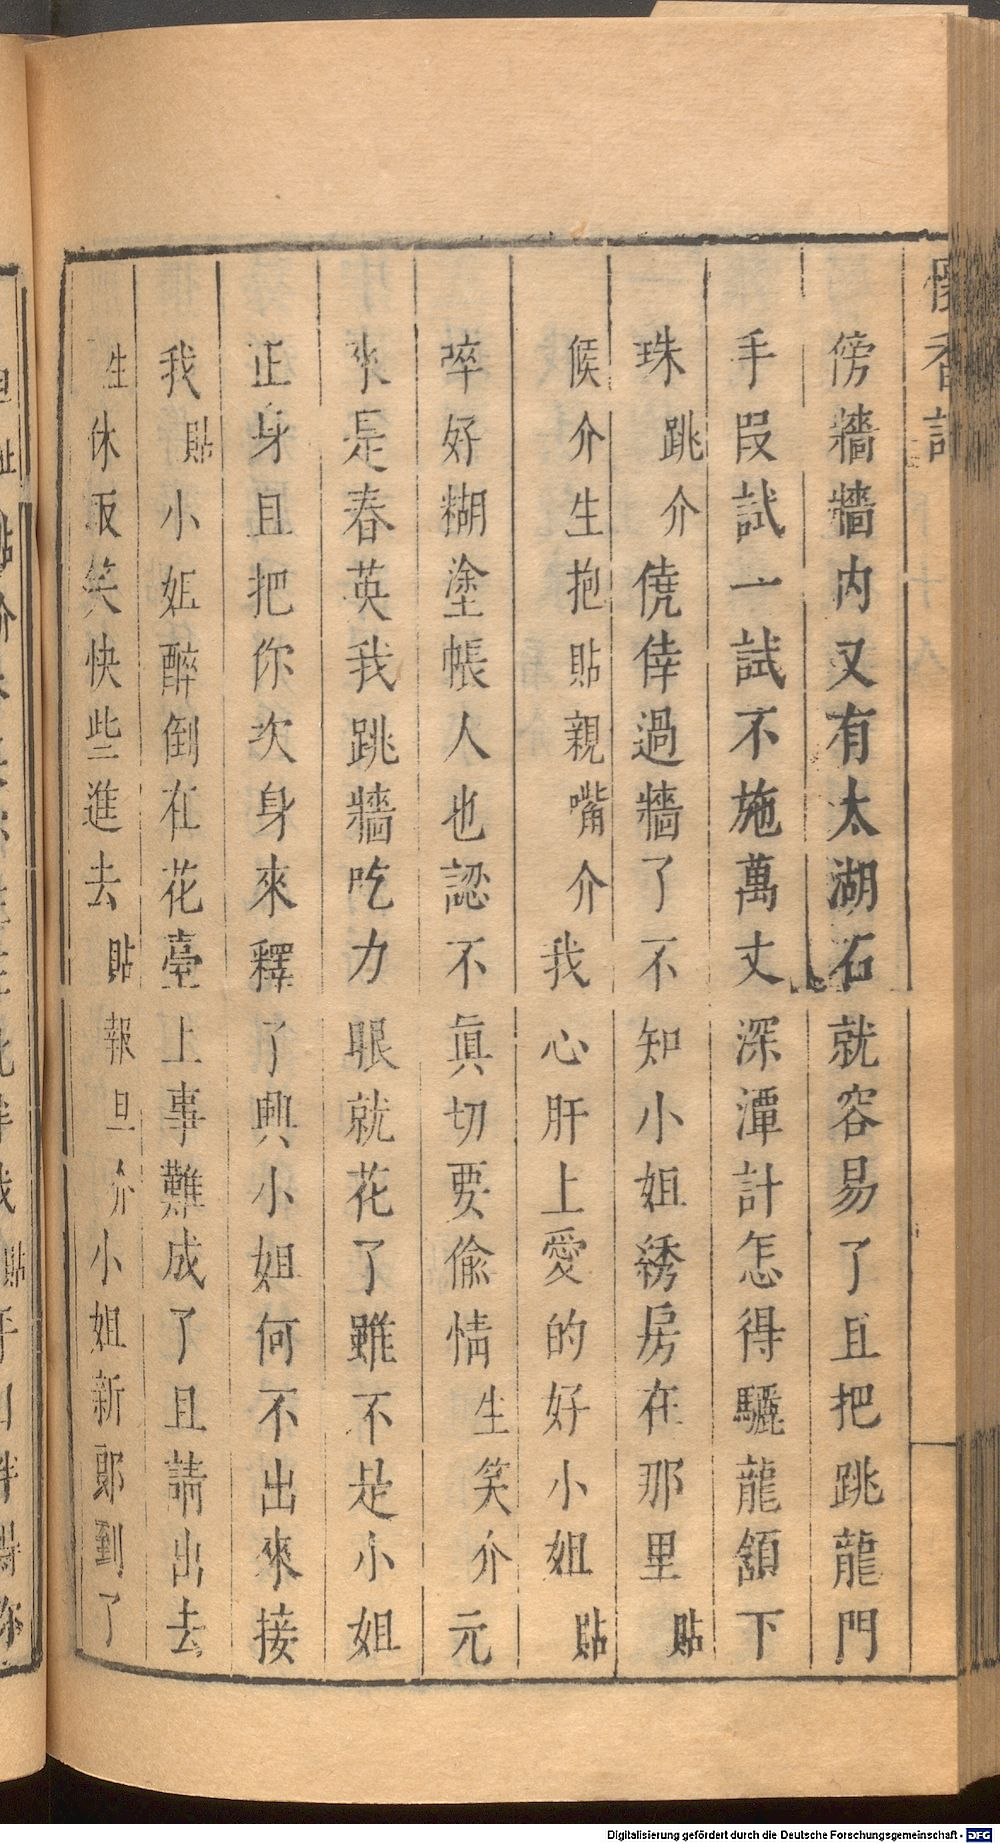 懷香記
傍牆牆內又有太湖石就容易了且把跳龍門
手段試一試不施萬丈深潭計怎得驪龍頷下
珠跳介僥倖過牆了不知小姐綉房在那里貼
候介生抱貼親嘴介我心肝上愛的好小姐貼
啐好糊塗帳人也認不眞切要偷情生笑介元
來是春英我跳牆吃力眼就花了雖不是小姐
正身且把你次身來釋了興小姐何不出來接
我貼小姐醉倒在花臺上事難成了且請出去
生休取笑快些進去貼報旦介小姐新郎到了
Digitalisierung gefördert durch die Deutsche Forschungsgemeinschaft - DFG